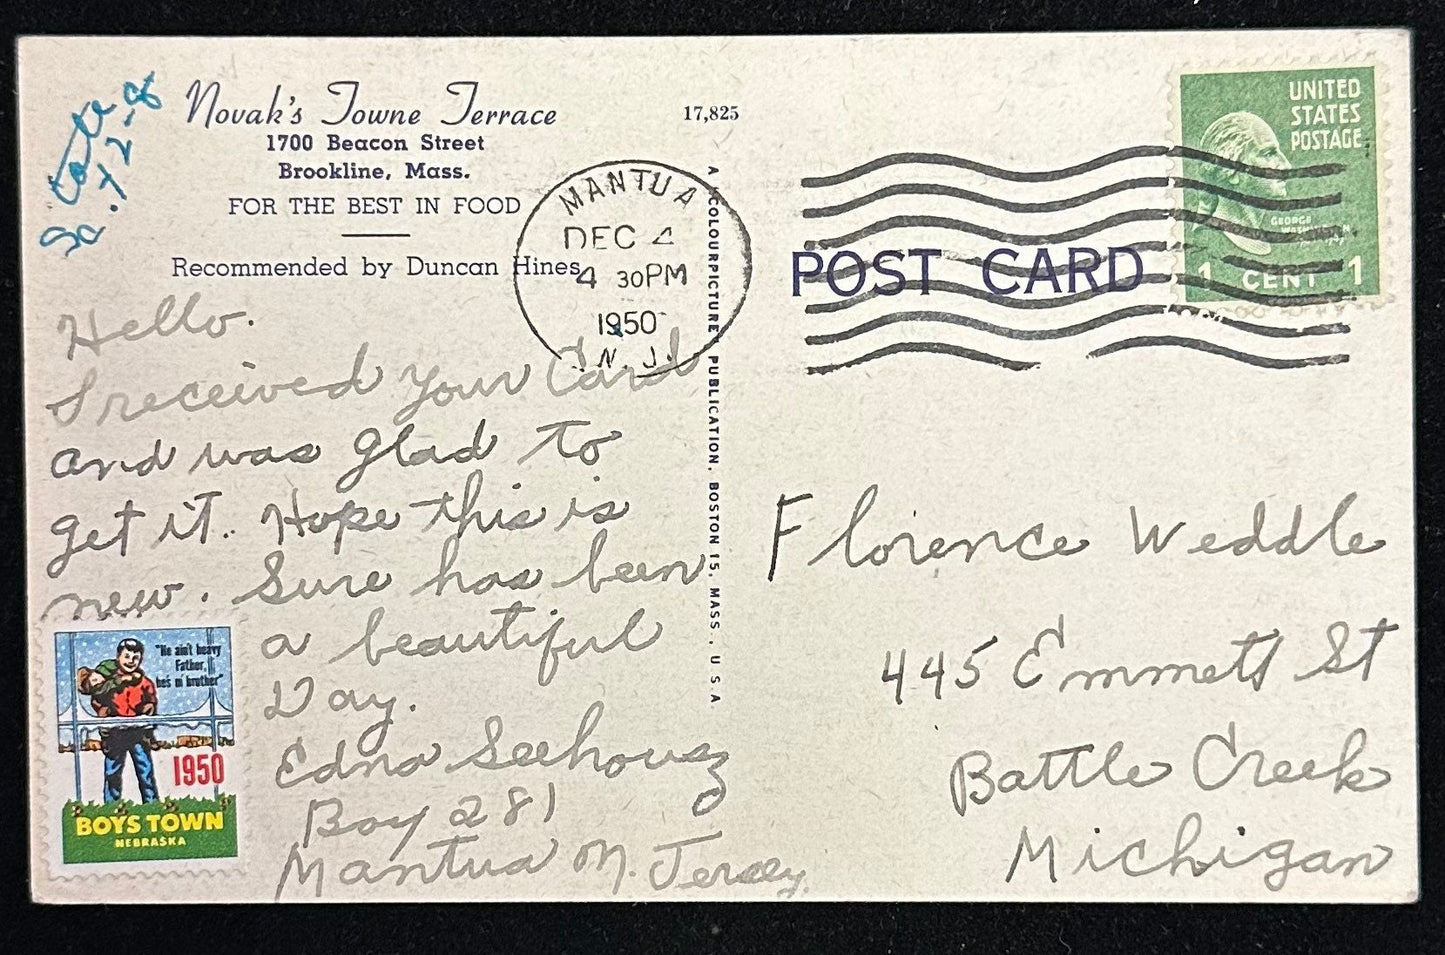 Novak's Towne Terrace
1700 Beacon Street
Brookline, Mass.
FOR THE BEST IN FOOD
Recommended by Duncan Hines
17,825
A COLOURPICTURE PUBLICATION, BOSTON 15, MASS., U S A
MANTUA
DEC 4
4 30PM
1950
N. J.
POST CARD
UNITED
STATES
POSTAGE
GEORGE
1 CENT 1
Hello.
I received your Card
and was glad to
get it. Hope this is
new. Sure has been
a beautiful
Day.
Edna Seehousz
Box 281
Mantua N. Jersey.
"He ain't heavy
Father,
he's m' brother"
1950
BOYS TOWN
NEBRASKA
Florence Weddle
445 Emmett St
Battle Creek
Michigan